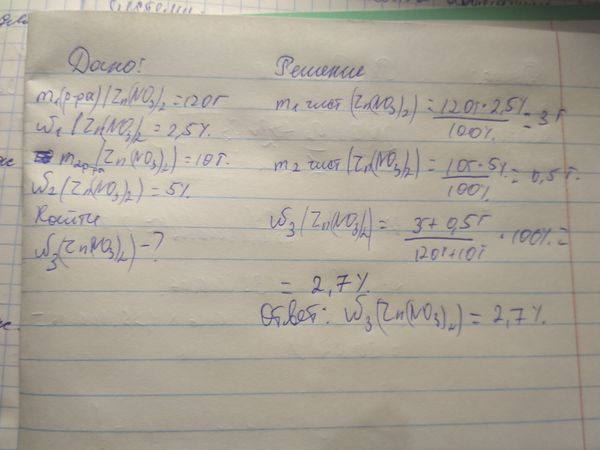 Дано:
m₁(р-ра)(Zn(NO₃)₂ = 120г
ω₁ (Zn(NO₃)₂ = 2,5%.
m₂р-ра (Zn(NO₃)₂) = 10г.
ω₂(Zn(NO₃)₂) = 5%
Найти
ω₃(Zn(NO₃)₂) - ?
Решение
m₁ чист (Zn(NO₃)₂) = 120г · 2,5% / 100% = 3г
m₂ чист (Zn(NO₃)₂) = 10г · 5% / 100% = 0,5г.
ω₃ (Zn(NO₃)₂) = 3г + 0,5г / 120г + 10г · 100% =
= 2,7%.
Ответ: ω₃(Zn(NO₃)₂) = 2,7%.